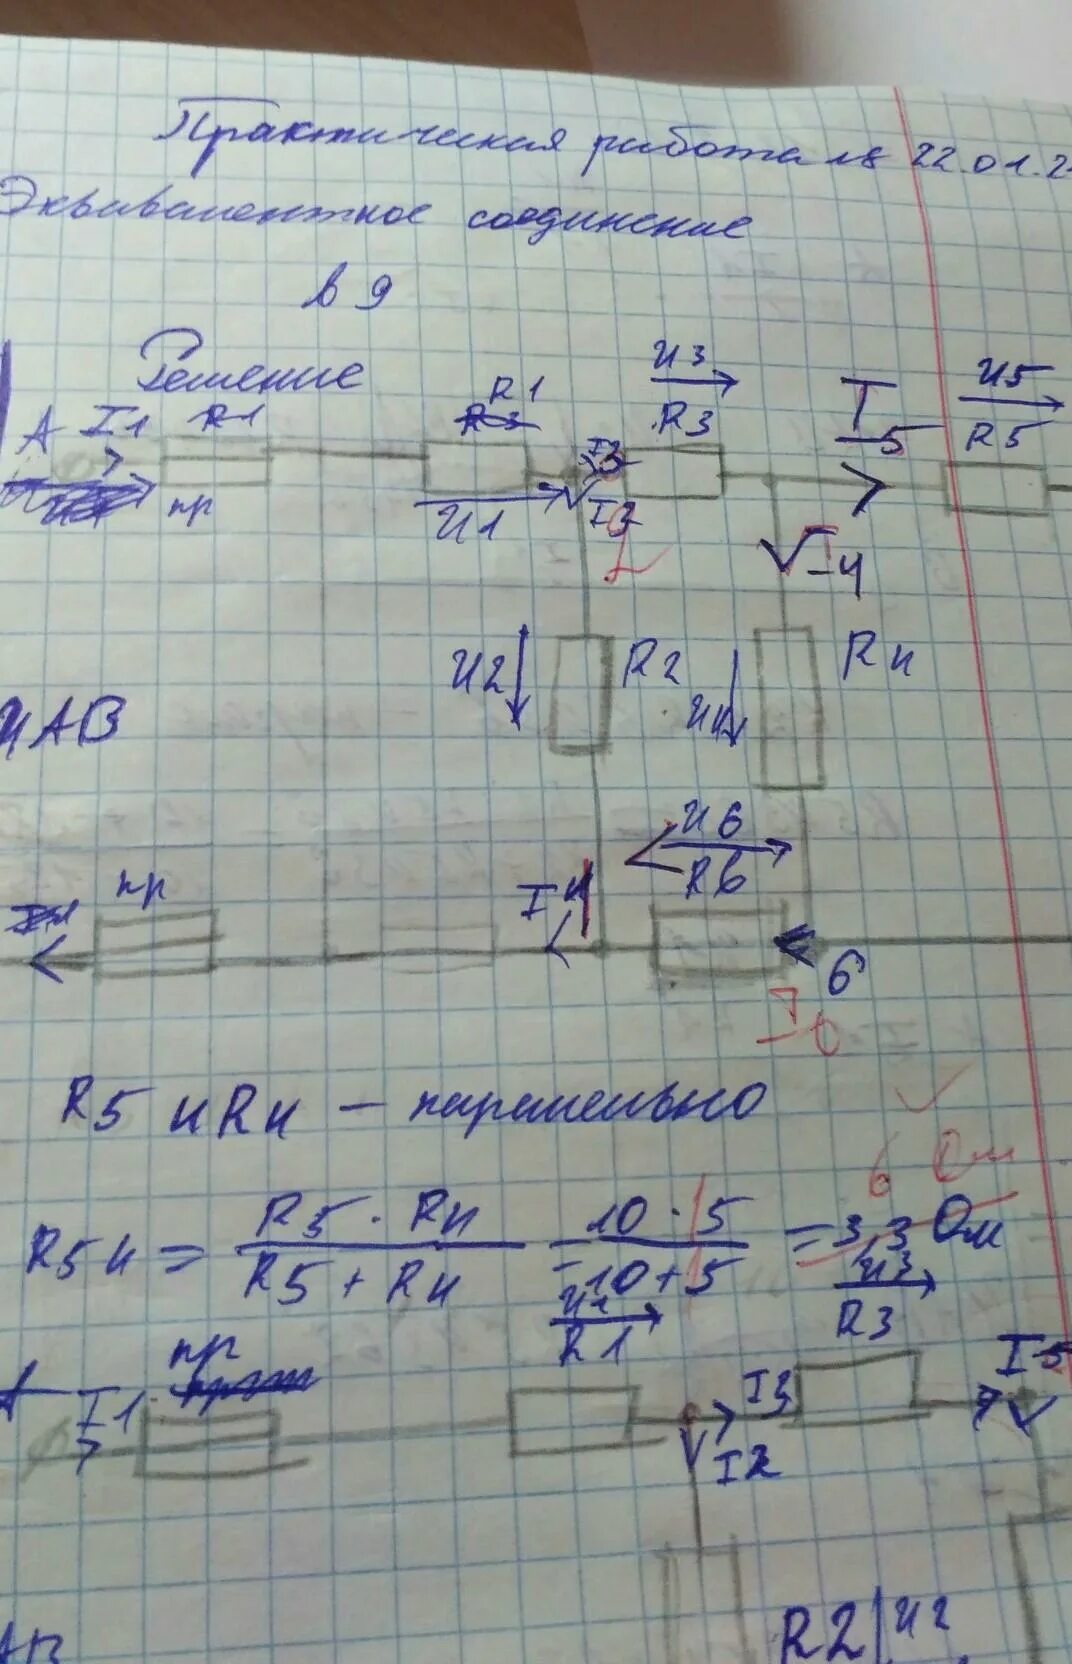 Практическая работа 18 22.01.2
Эквивалентное соединение
в 9
Решение
A I1 R1
R1
U3
R3
I5
U5
R5
пр
U1
I3
I2
I4
U2
R2
U4
R4
UAB
пр
U6
R6
I1
I
6
I6
R5 и R4 – параллельно
R54 = R5 · R4 / R5 + R4 = 10 · 5 / 10 + 5 = 3,3 Ом
6 Ом
U1
R1
U3
R3
пр
A I1
I3
I5
I2
R2 U2
AB